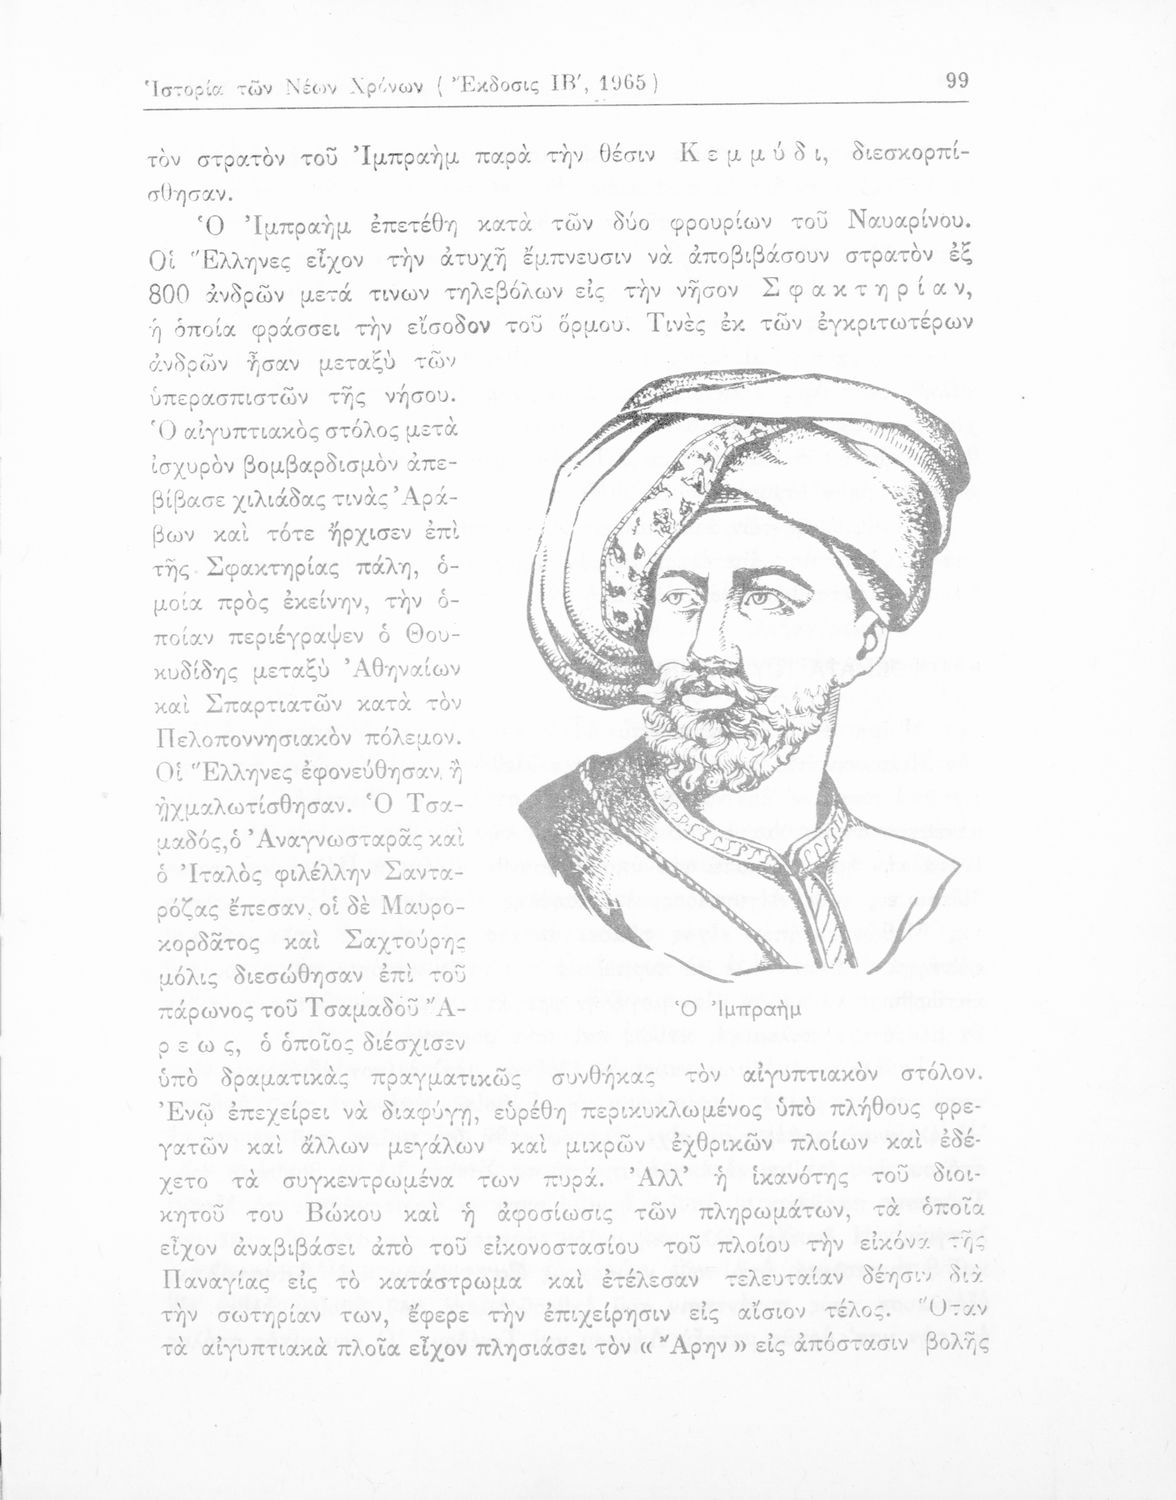 Ἱστορία τῶν Νέων Χρόνων ( Ἔκδοσις ΙΒ′, 1965)
99
τὸν στρατὸν τοῦ Ἰμπραὴμ παρὰ τὴν θέσιν Κ ε μ μ ύ δ ι, διεσκορπί-
σθησαν.
Ὁ Ἰμπραὴμ ἐπετέθη κατὰ τῶν δύο φρουρίων τοῦ Ναυαρίνου.
Οἱ Ἕλληνες εἶχον τὴν ἀτυχῆ ἔμπνευσιν νὰ ἀποβιβάσουν στρατὸν ἐξ
800 ἀνδρῶν μετά τινων τηλεβόλων εἰς τὴν νῆσον Σ φ α κ τ η ρ ί α ν,
ἡ ὁποία φράσσει τὴν εἴσοδον τοῦ ὅρμου. Τινὲς ἐκ τῶν ἐγκριτωτέρων
ἀνδρῶν ἦσαν μεταξὺ τῶν
ὑπερασπιστῶν τῆς νήσου.
Ὁ αἰγυπτιακὸς στόλος μετὰ
ἰσχυρὸν βομβαρδισμὸν ἀπε-
βίβασε χιλιάδας τινὰς Ἀρά-
βων καὶ τότε ἤρχισεν ἐπὶ
τῆς Σφακτηρίας πάλη, ὁ-
μοία πρὸς ἐκείνην, τὴν ὁ-
ποίαν περιέγραψεν ὁ Θου-
κυδίδης μεταξὺ Ἀθηναίων
καὶ Σπαρτιατῶν κατὰ τὸν
Πελοποννησιακὸν πόλεμον.
Οἱ Ἕλληνες ἐφονεύθησαν, ἢ
ἠχμαλωτίσθησαν. Ὁ Τσα-
μαδός,ὁ Ἀναγνωσταρᾶς καὶ
ὁ Ἰταλὸς φιλέλλην Σαντα-
ρόζας ἔπεσαν, οἱ δὲ Μαυρο-
κορδᾶτος καὶ Σαχτούρης
μόλις διεσώθησαν ἐπὶ τοῦ
πάρωνος τοῦ Τσαμαδοῦ Ἄ-
ρ ε ω ς, ὁ ὁποῖος διέσχισεν
Ὁ Ἰμπραὴμ
ὑπὸ δραματικὰς πραγματικῶς συνθήκας τὸν αἰγυπτιακὸν στόλον.
Ἐνῷ ἐπεχείρει νὰ διαφύγῃ, εὑρέθη περικυκλωμένος ὑπὸ πλήθους φρε-
γατῶν καὶ ἄλλων μεγάλων καὶ μικρῶν ἐχθρικῶν πλοίων καὶ ἐδέ-
χετο τὰ συγκεντρωμένα των πυρά. Ἀλλ’ ἡ ἱκανότης τοῦ διοι-
κητοῦ του Βώκου καὶ ἡ ἀφοσίωσις τῶν πληρωμάτων, τὰ ὁποῖα
εἶχον ἀναβιβάσει ἀπὸ τοῦ εἰκονοστασίου τοῦ πλοίου τὴν εἰκόνα τῆς
Παναγίας εἰς τὸ κατάστρωμα καὶ ἐτέλεσαν τελευταίαν δέησιν διὰ
τὴν σωτηρίαν των, ἔφερε τὴν ἐπιχείρησιν εἰς αἴσιον τέλος. Ὅταν
τὰ αἰγυπτιακὰ πλοῖα εἶχον πλησιάσει τὸν « Ἄρην » εἰς ἀπόστασιν βολῆς